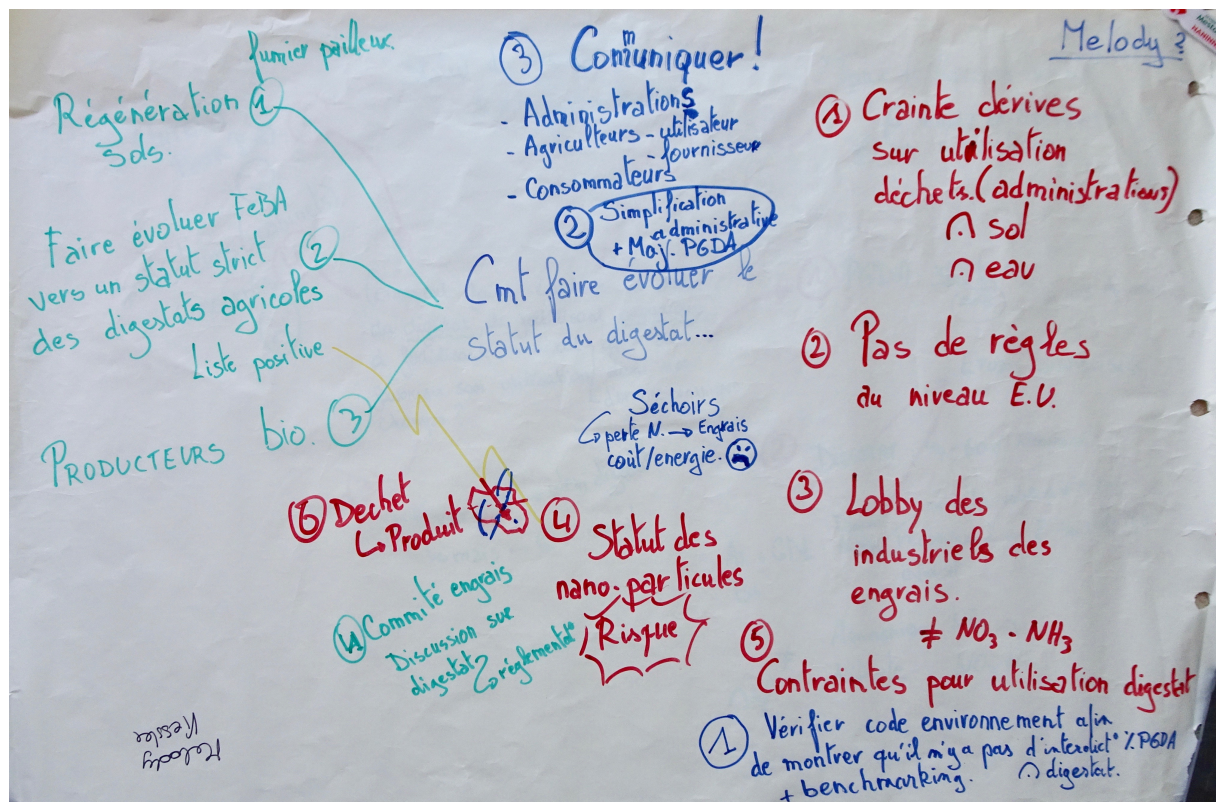 fumier pailleux.
Régénération ①
sols.
Faire évoluer FeBA
vers un statut strict ②
des digestats agricoles
Liste positive
PRODUCTEURS bio. ③
③ Communiquer !
- Administrations
- Agriculteurs - utilisateur
- fournisseur
- Consommateurs
② Simplification
administrative
+ Màj. PGDA
Cmt faire évoluer le
statut du digestat...
Séchoirs
↳ perte N. → Engrais
coût/energie. ☹
⑥ Dechet
↳ Produit
④ Statut des
nano-particules
Risque
④ Commité engrais
Discussion sur
digestat
↳ réglementat°
Melody ?
① Crainte dérives
sur utilisation
déchets. (administrations)
∩ sol
∩ eau
② Pas de règles
au niveau E.U.
③ Lobby des
industriels des
engrais.
≠ NO3 - NH3
⑤
Contraintes pour utilisation digestat
① Vérifier code environnement afin
de montrer qu'il n'y a pas d'interdict° % PGDA
+ benchmarking. ∩ digestat.
Melody
Kessler